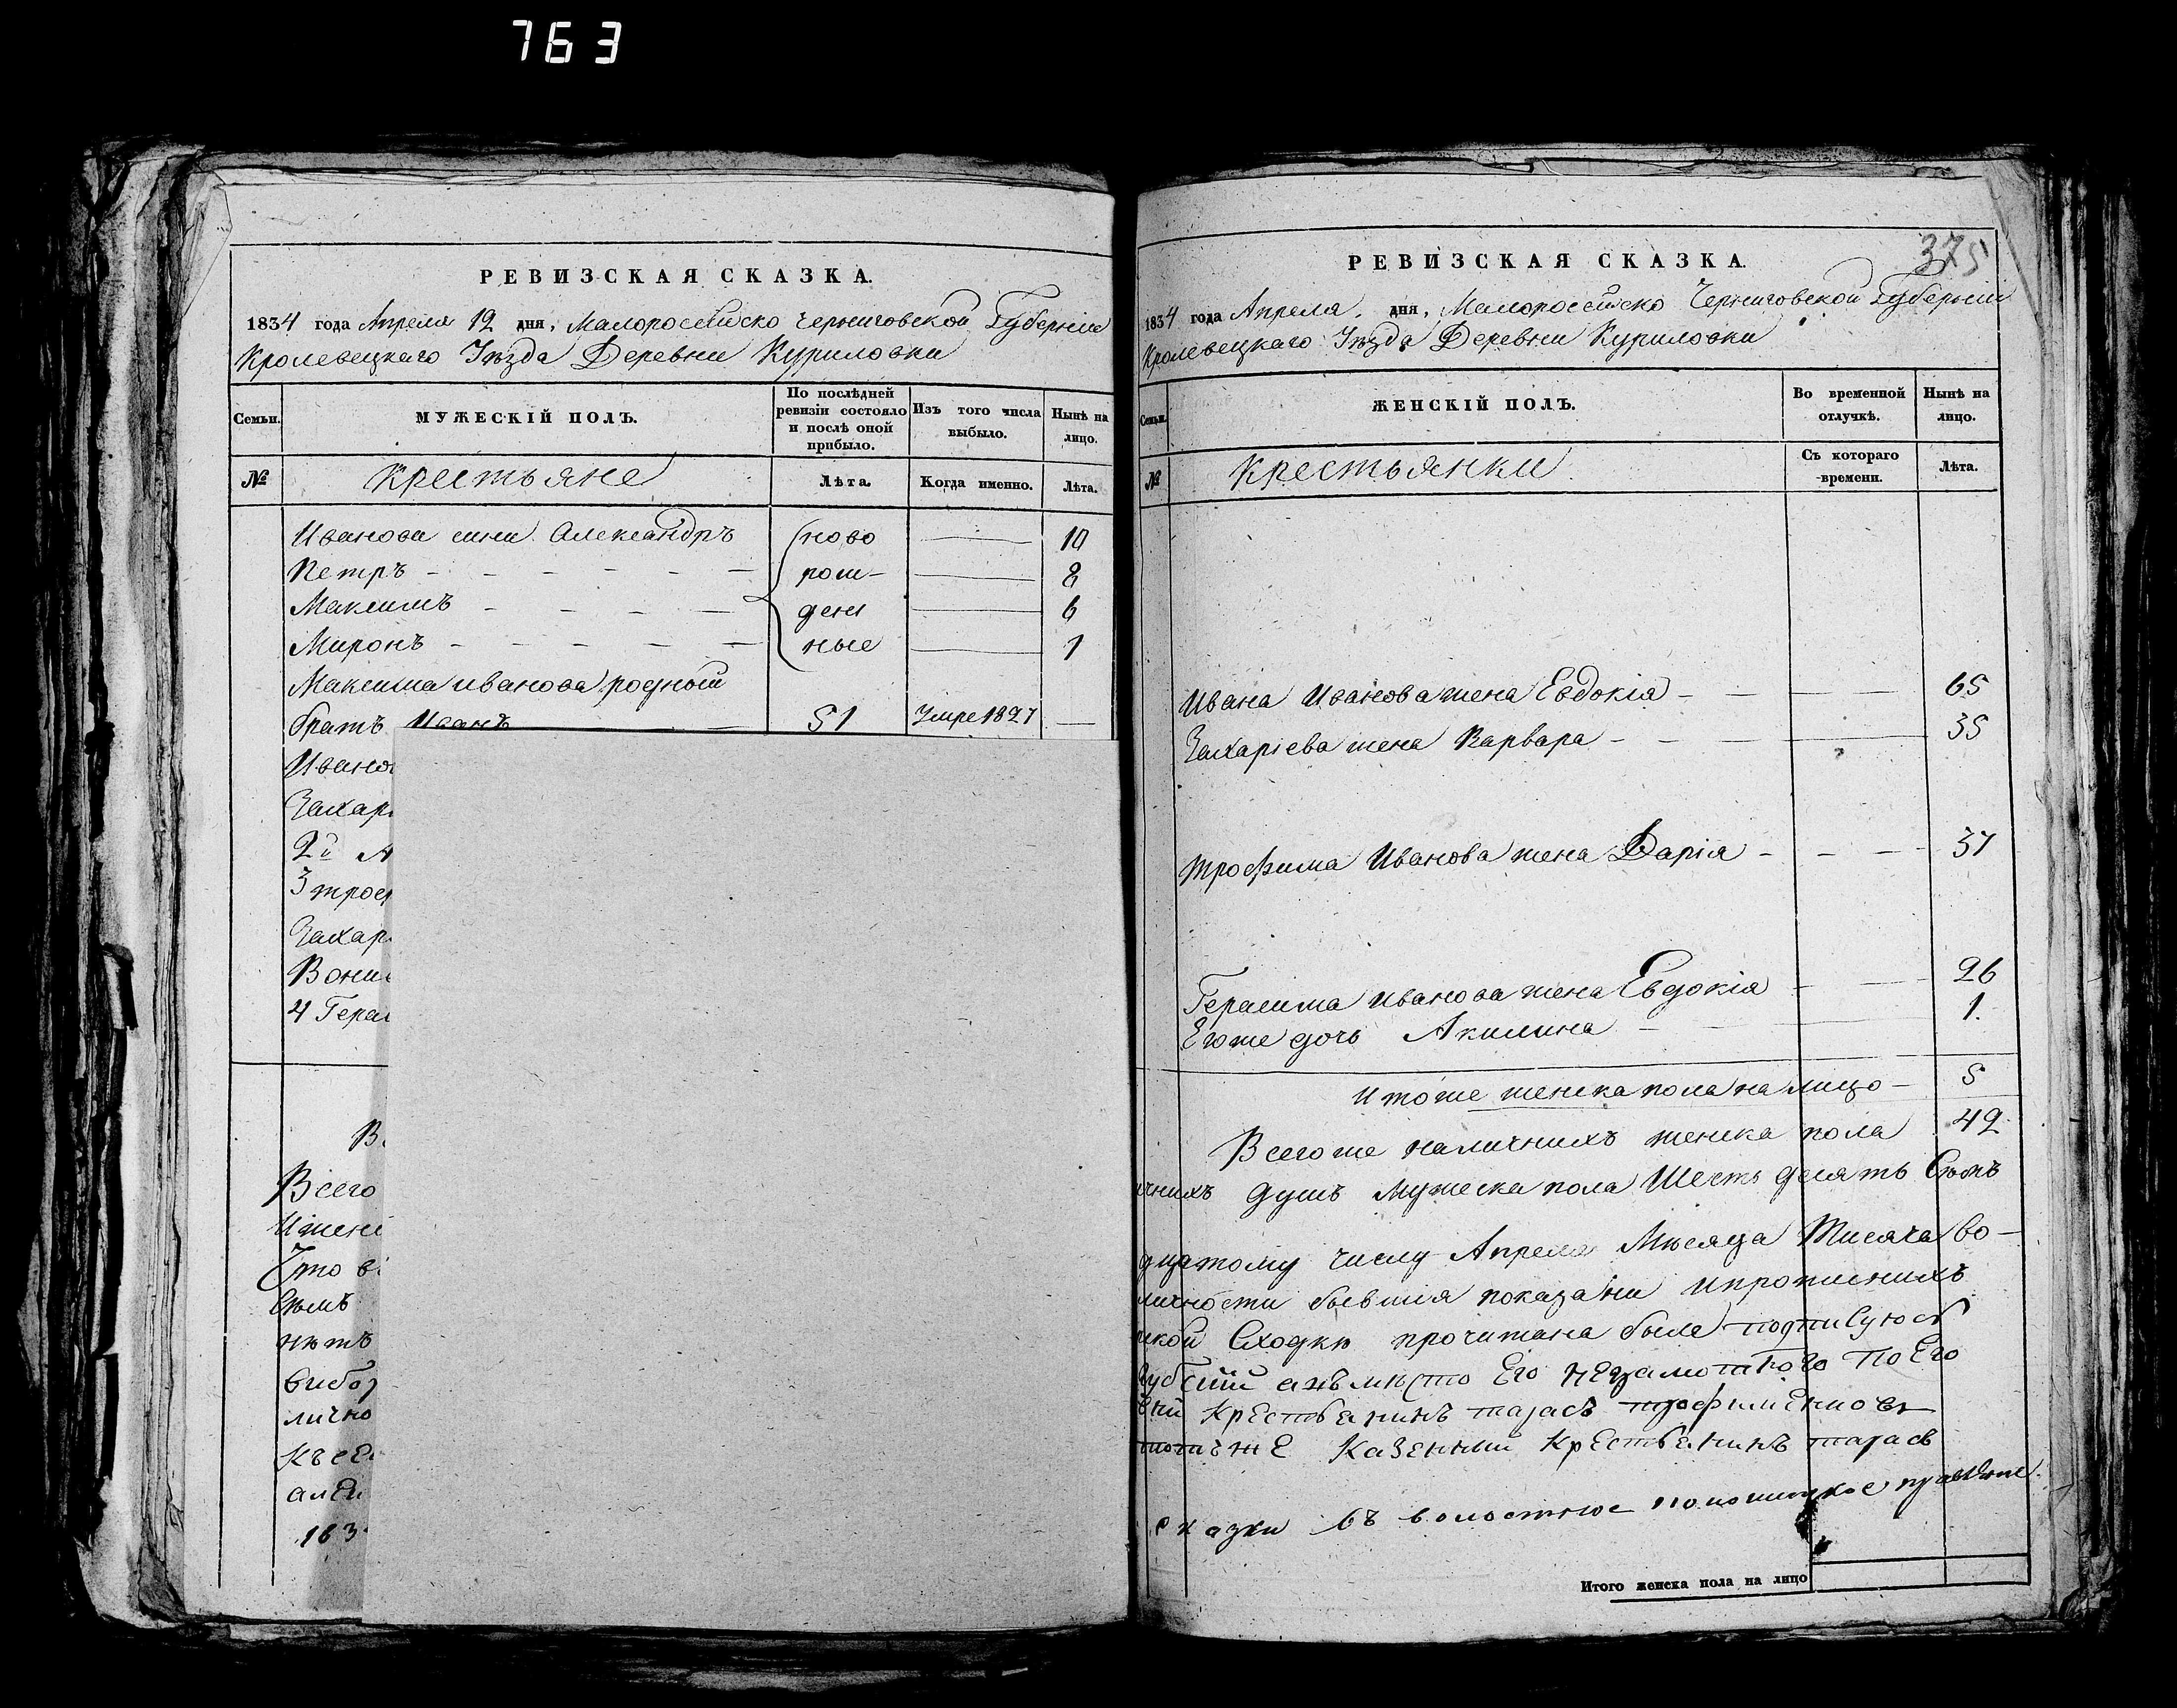 763
РЕВИЗСКАЯ СКАЗКА.
1834 года Апреля 12 дня, Малоросѣйско Черниговской Губерніи
Кролевецкаго Уѣзда Деревни Куриловки
Семьи.
МУЖЕСКІЙ ПОЛЪ.
По послѣдней ревизіи состояло и послѣ оной прибыло.
Изъ того числа выбыло.
Нынѣ на лицо.
№
Крестьяне
Лѣта.
Когда именно.
Лѣта.
Иванова сини Александръ ново 10
Петръ рож- 8
Максимъ ден 6
Миронъ ные 1
Максима иванова родной
братъ Иванъ 51 Умре 1827
Иванов
Захар
2й А
3 троф
Захар
Вони
4 Герас
В
Всего
Что в
Семъ
нѣтъ
вибор
лично
къ се
183
375
РЕВИЗСКАЯ СКАЗКА.
1834 года Апреля. дня, Малоросѣйско Черниговской Губерніи
Кролевецкаго Уѣзда Деревни Куриловки
Семьи.
ЖЕНСКІЙ ПОЛЪ.
Во временной отлучкѣ.
Нынѣ на лицо.
№
Крестьянки
Съ котораго времени.
Лѣта.
Ивана Иванова жена Евдокія 65
Захаріева жена Варвара 35
Трофима Иванова жена Дарія 37
Герасима иванова жена Евдокія 26
Егоже дочь Акилина 1.
Итоже женска пола на лицо 5
Всегоже наличнихъ женска пола 42
чнихъ душъ Мужеска пола Шесть десять Семъ
дцятому числу Апреля Мѣсяца Тисяча во-
личности бывшія показани ипрописнихъ
ской Сходки прочитана была подписуюсь
анѣмѣсто Его неграмотного По Его
Крестьянинъ тарасъ трофименковъ
Казенный Крестьянинъ тарасъ
сказки въ волостное
Итого женска пола на лицо